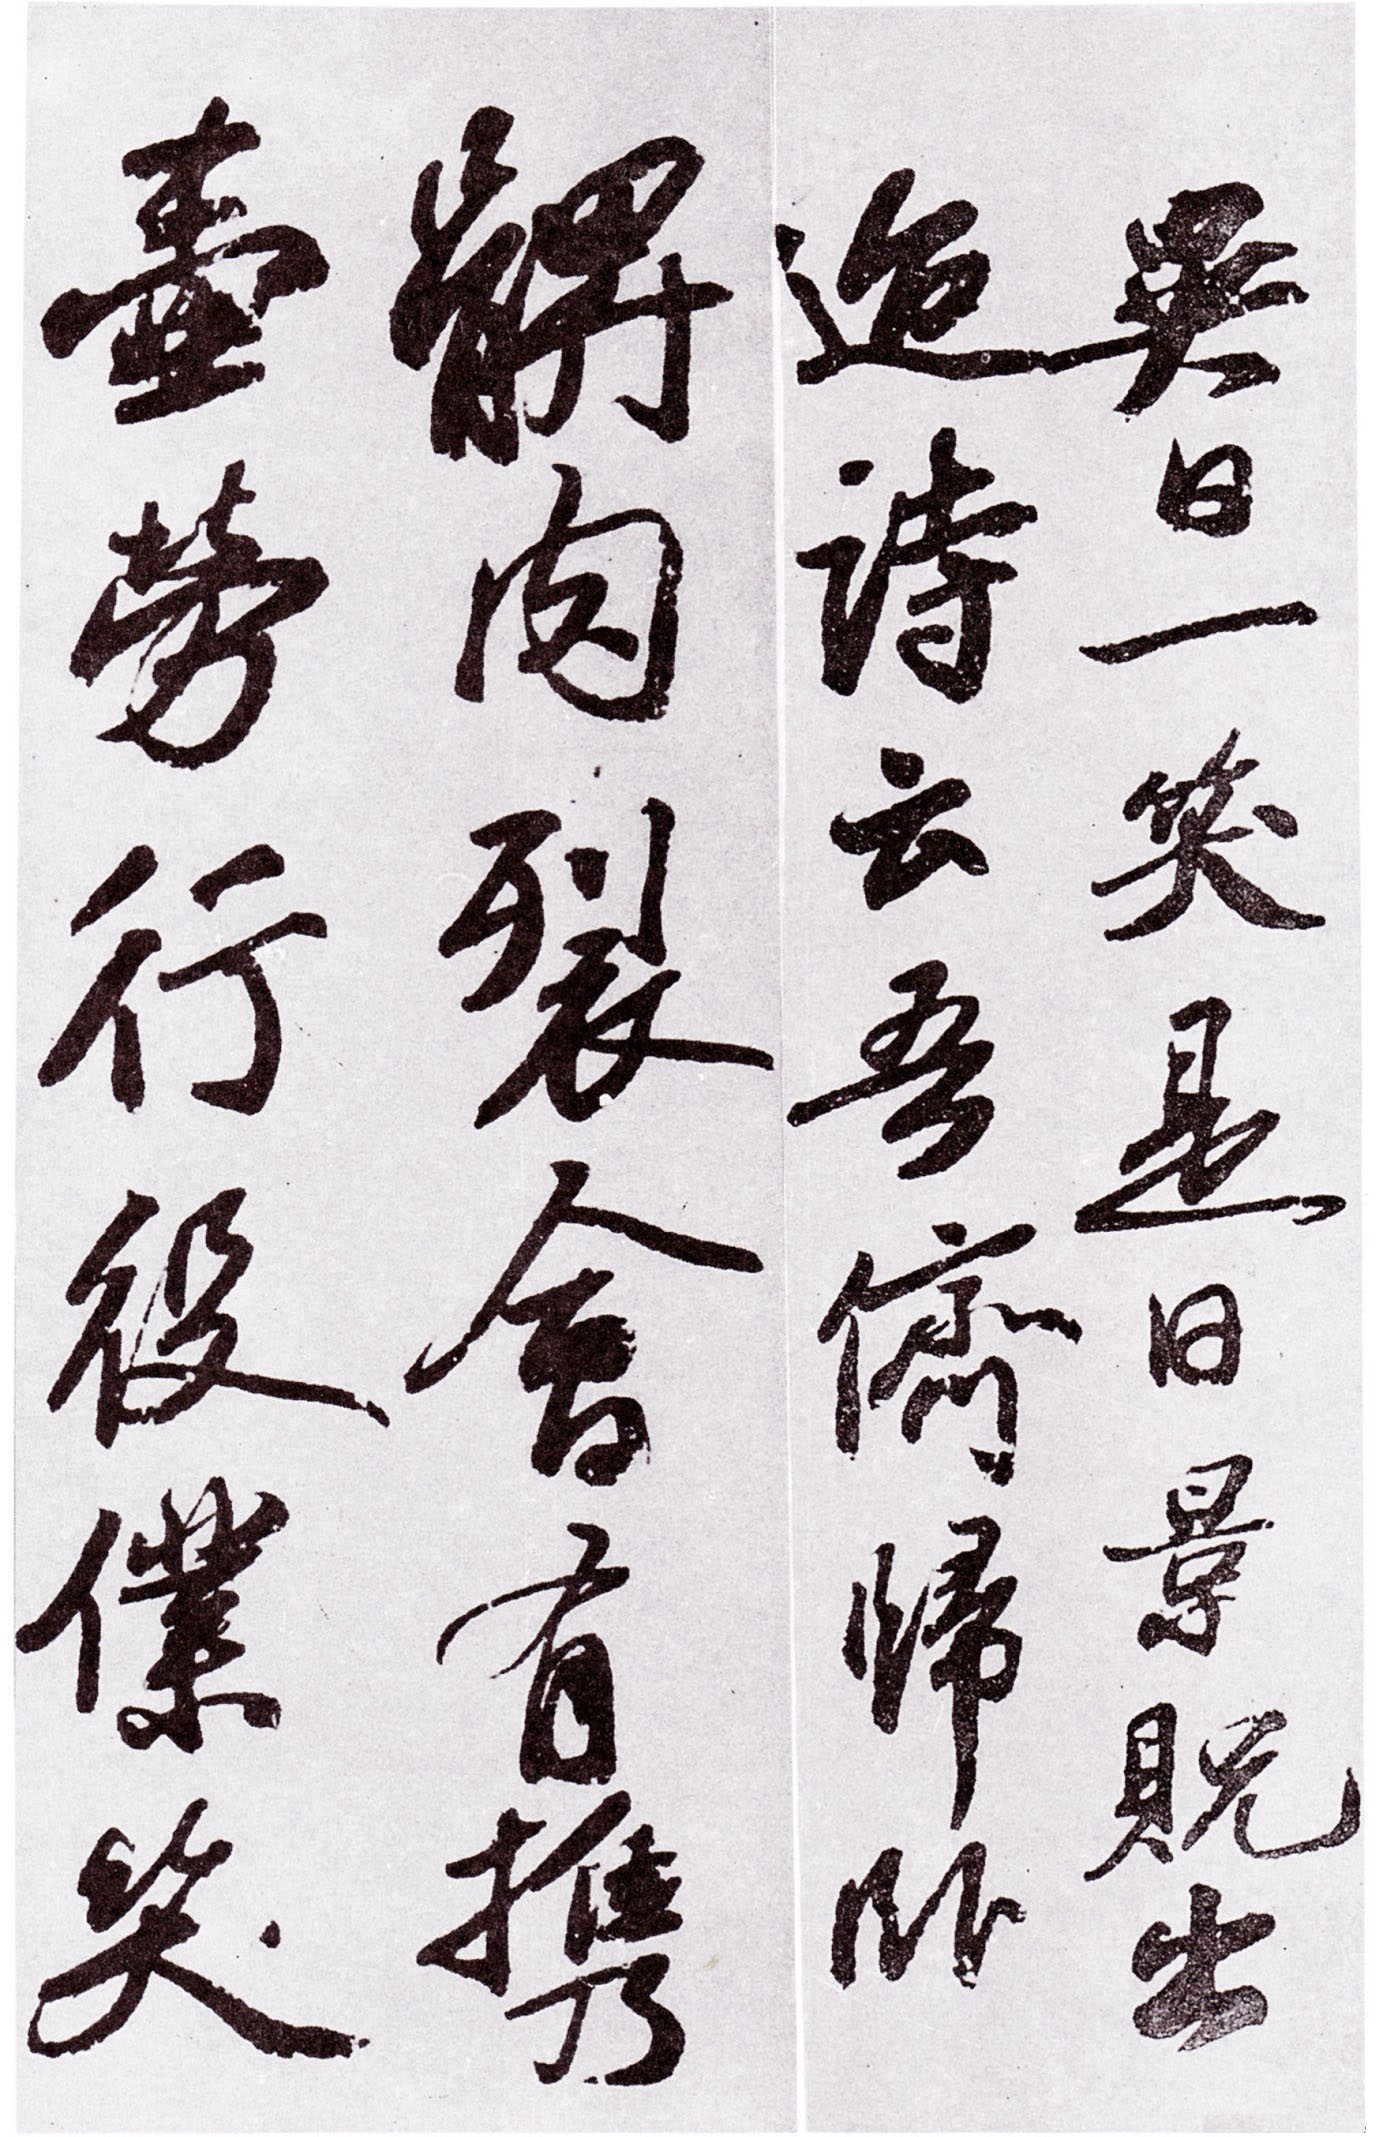 異日一笑是日景貺出
迨詩云吾儕歸臥
髀肉裂會有携
壺勞行役僕笑